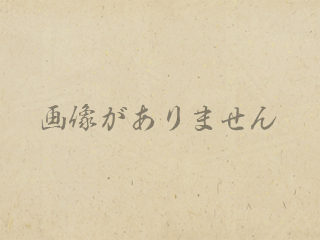 画像がありません